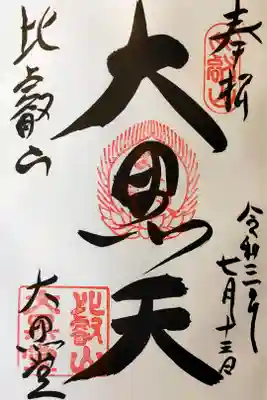 奉拝
令和三年七月十三日
大黒天
比叡山
大黒堂
比叡山